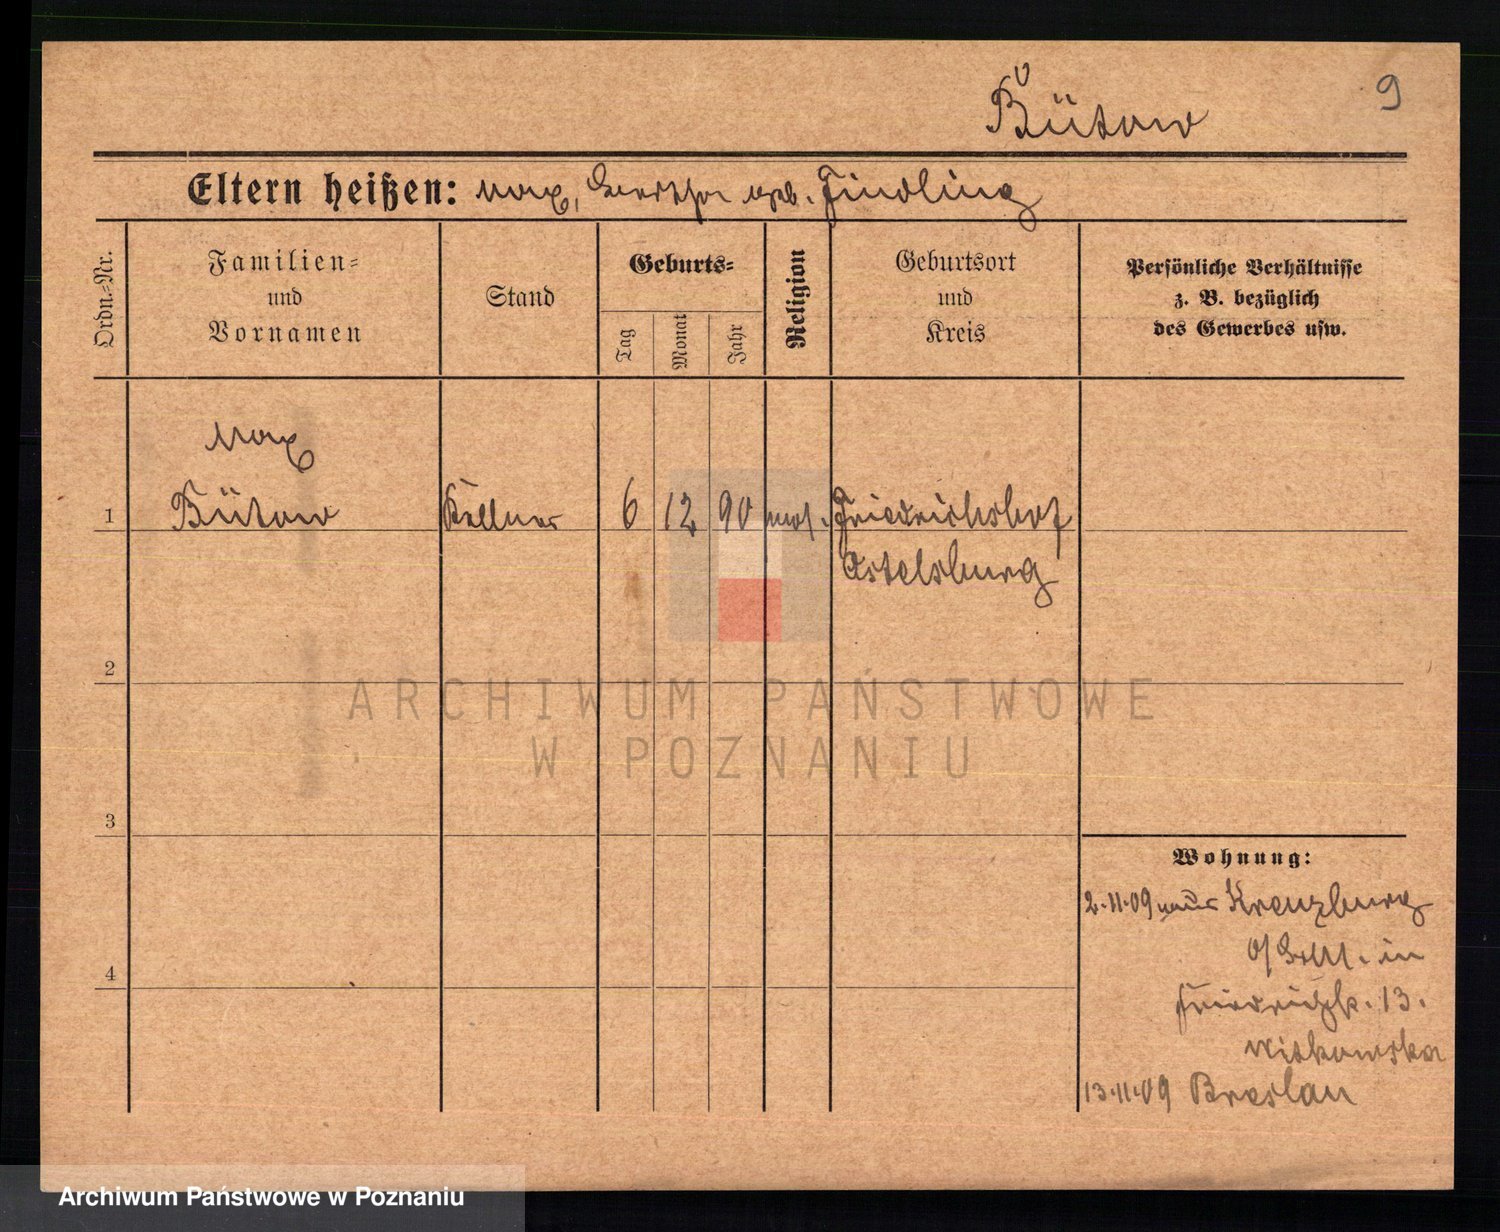 9
Bütow
Eltern heißen: Max, Bertha geb. Findling
Ordn.-Nr.
Familien-
und
Vornamen
Stand
Geburts-
Tag
Monat
Jahr
Religion
Geburtsort
und
Kreis
Persönliche Verhältnisse
z. B. bezüglich
des Gewerbes usw.
Max
1 Bütow Kellner 6 12 90 mos. Friedrichshof
Ortelsburg
2
ARCHIWUM PAŃSTWOWE
W POZNANIU
3
Wohnung:
2.11.09 aus Kreuzburg
4
O/Schl. in
Friedrichstr. 13.
Witkowska
13.11.09 Breslau
Archiwum Państwowe w Poznaniu